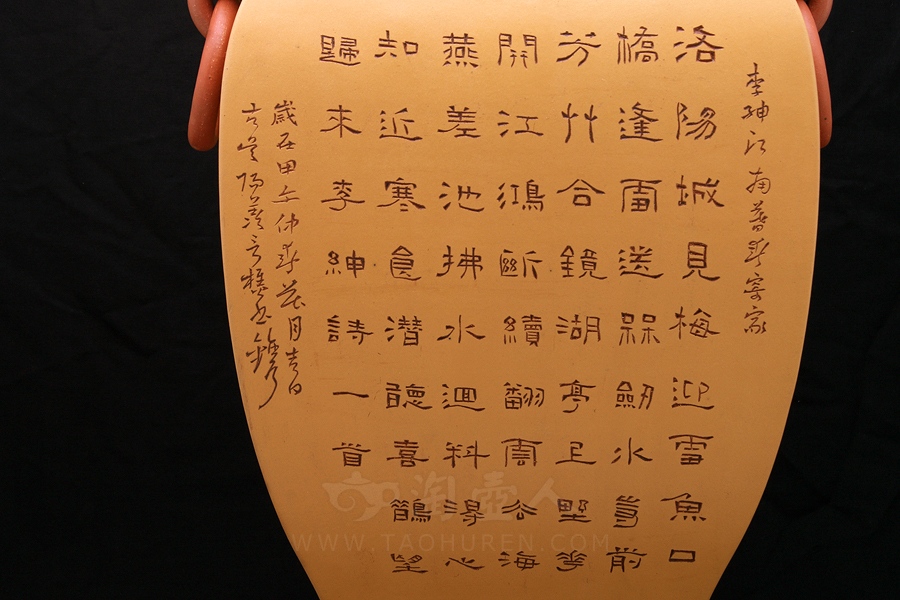 李紳江南暮春寄家
洛陽城見梅迎雪魚口
橋逢雪送槑劎水寺前
芳艸合鏡湖亭上野華
開江鴻斷續翻雲海
燕差池拂水迴料得心
知近寒食潛聽喜鵲望
歸來李紳詩一首
歲在甲午仲春花月吉日
陽羨
淘壺人
WWW.TAOHUREN.COM